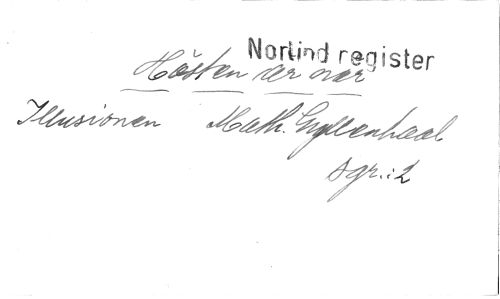 Norlind register
Hösten är när
Illusionen Math. Gyllenhaal
sgr.:2